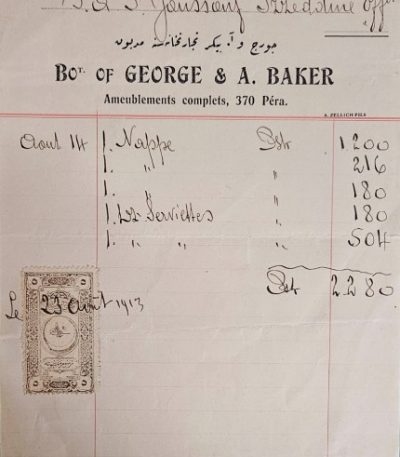 S. A. I. Youssouf Izzeddine Effen
جورج و آ. بیکر تجارتخانه‌سنه مدیون
BOT. OF GEORGE & A. BAKER
Ameublements complets, 370 Péra.
A. ZELLICH FILS
Aout 14 1. Nappe Pstr 1200
1. " " 216
1. " " 180
1. Dz Serviettes " 180
1. " " " 504
Pstr 2.280
Le 23 Août 1913